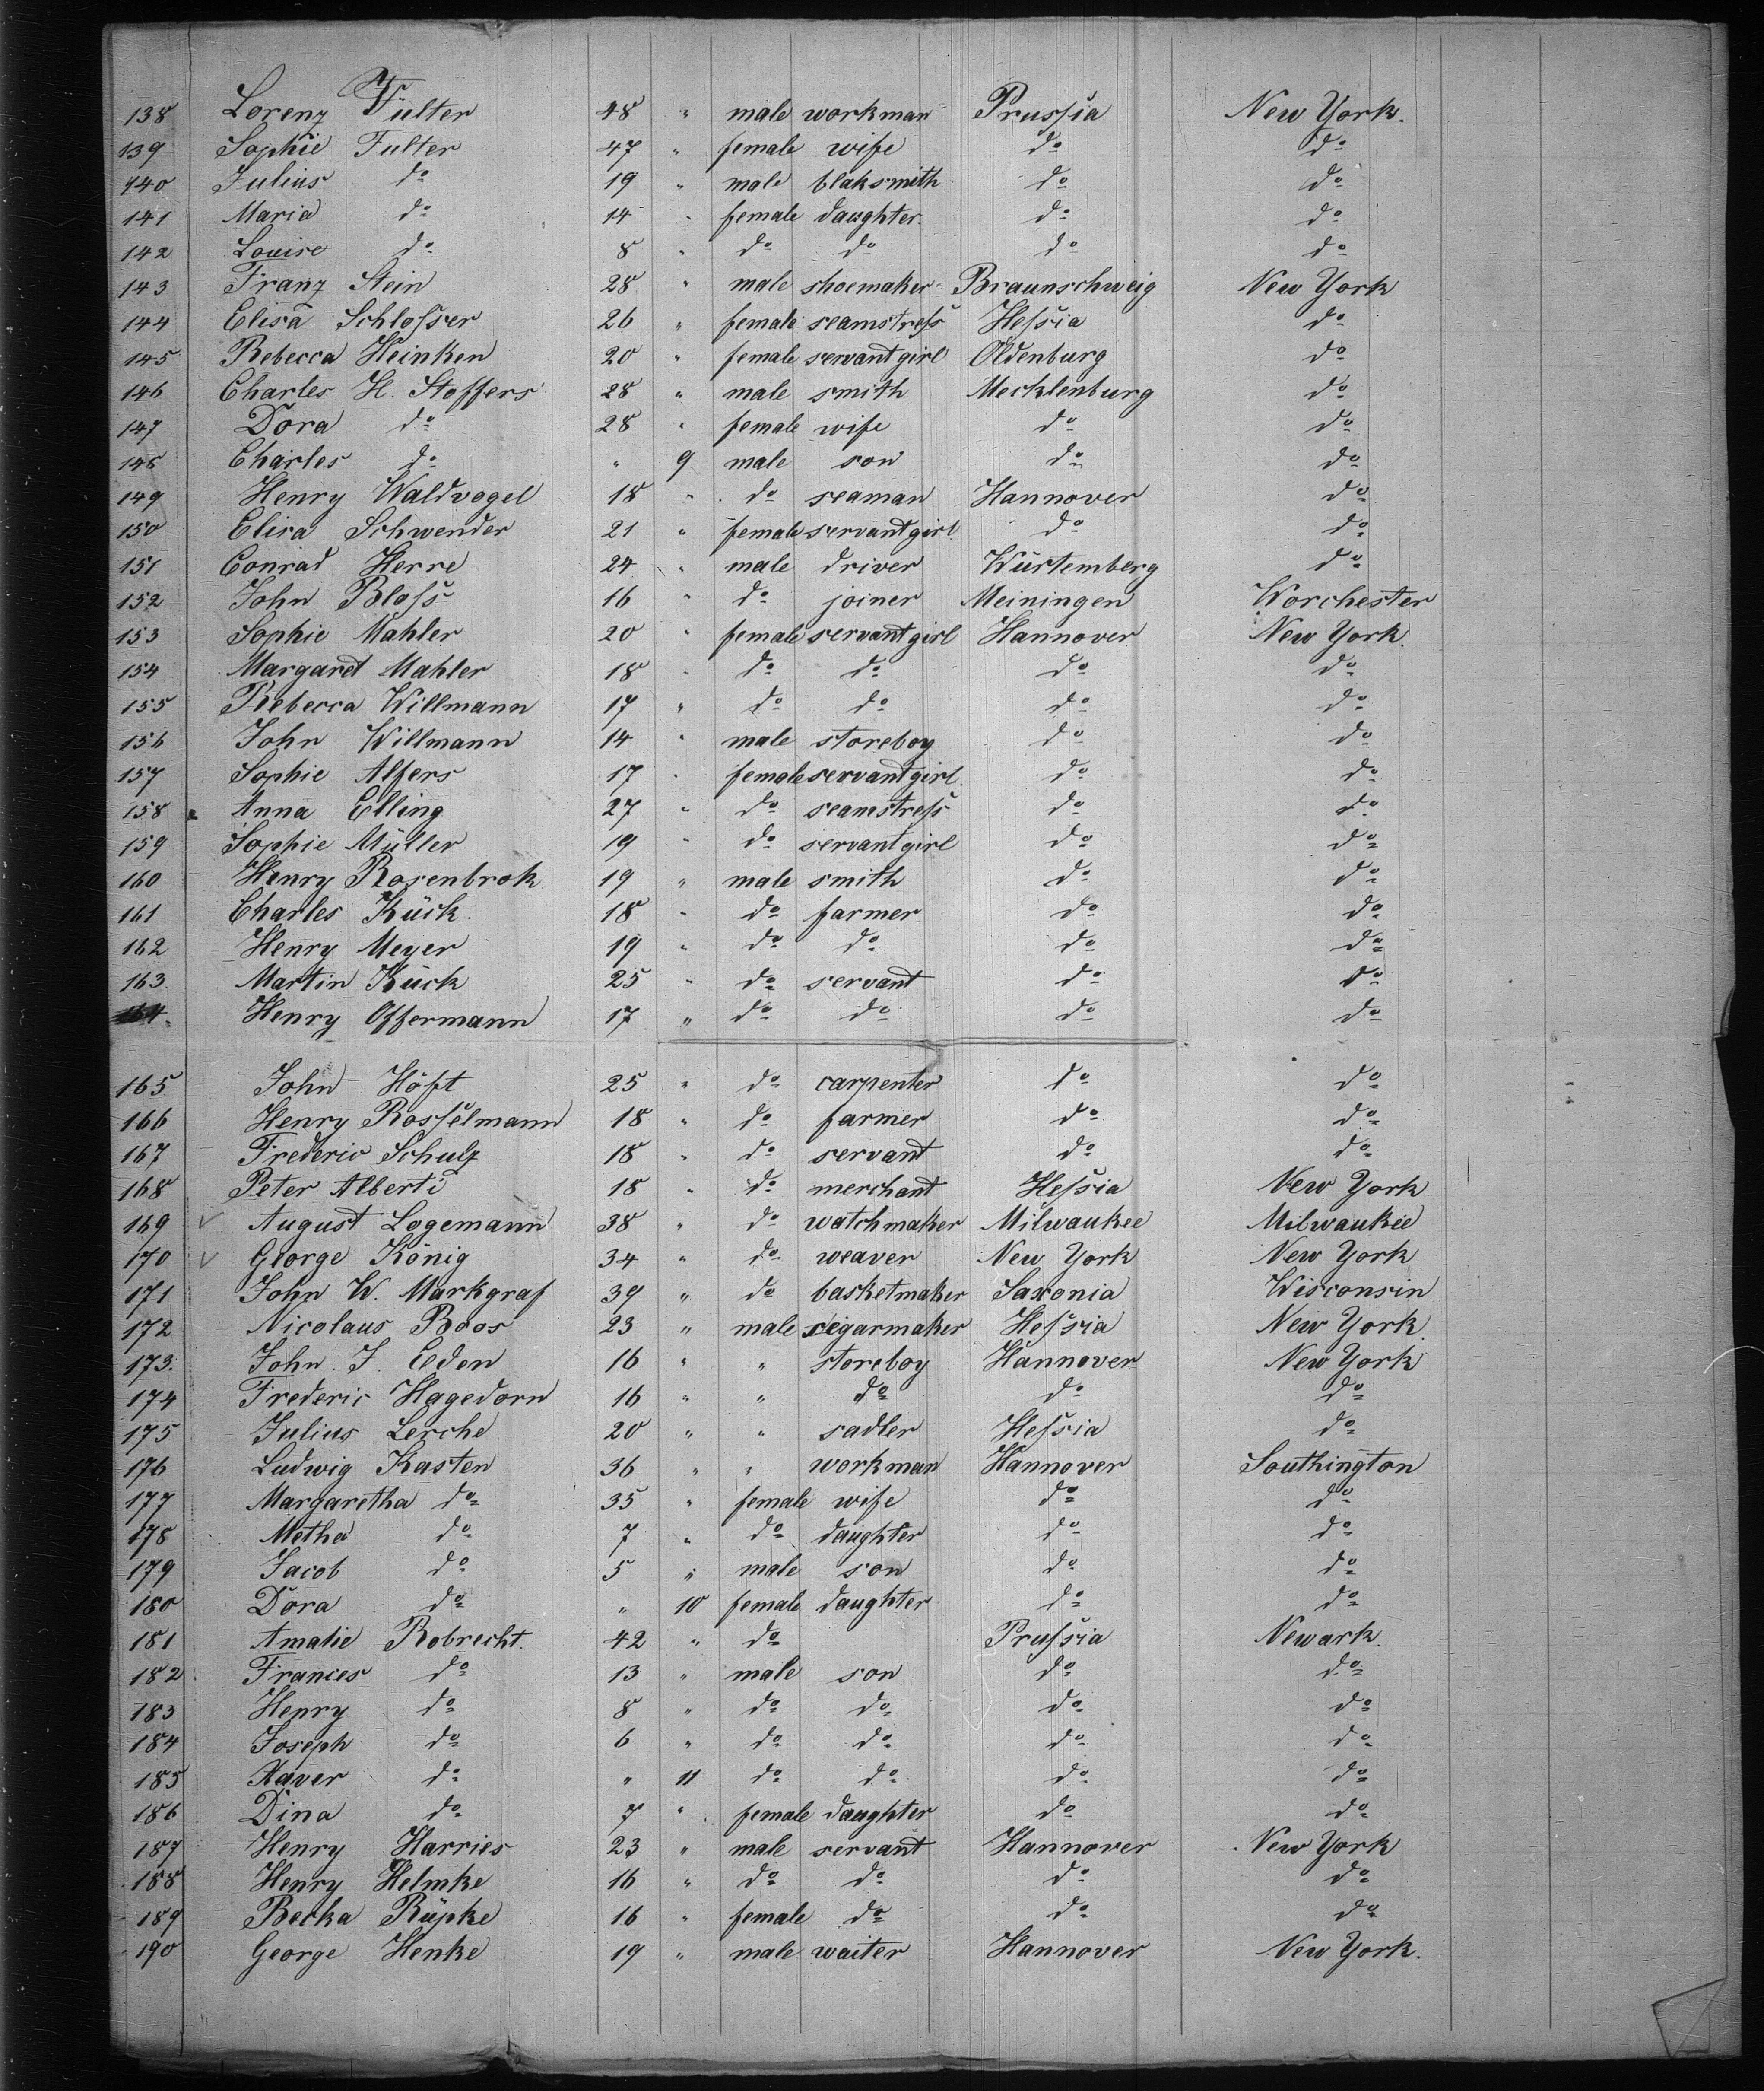 138 Lorenz Fulter 48 " male workman Prussia New York.
139 Sophie Fulter 47 " female wife do do
140 Julius do 19 " male blaksmith do do
141 Maria do 14 " female daughter do do
142 Louise do 8 " do do do do
143 Franz Stein 28 " male shoemaker Braunschweig New York
144 Elisa Schlosser 26 " female seamstress Hessia do
145 Rebecca Heinken 20 " female servant girl Oldenburg do
146 Charles H. Stoffers 28 " male smith Mecklenburg do
147 Dora do 28 " female wife do do
148 Charles do " 9 male son do do
149 Henry Waldvogel 18 " do seaman Hannover do
150 Elisa Schwender 21 " female servant girl do do
151 Conrad Herre 24 " male driver Würtemberg do
152 John Bloss 16 " do joiner Meiningen Worchester
153 Sophie Mahler 20 " female servant girl Hannover New York.
154 Margaret Mahler 18 " do do do do
155 Rebecca Willmann 17 " do do do do
156 John Willmann 14 " male storeboy do do
157 Sophie Alfers 17 " female servant girl do do
158 Anna Elling 27 " do seamstress do do
159 Sophie Müller 19 " do servant girl do do
160 Henry Rosenbrok 19 " male smith do do
161 Charles Kück 18 " do farmer do do
162 Henry Meyer 19 " do do do do
163. Martin Kück 25 " do servant do do
164. Henry Offermann 17 " do do do do
165 John Höft 25 " do carpenter do do
166 Henry Rosselmann 18 " do farmer do do
167 Frederic Schulz 18 " do servant do do
168 Peter Alberti 18 " do merchant Hessia New York
169 August Logemann 38 " do watchmaker Milwaukee Milwaukee
170 George König 34 " do weaver New York New York
171 John W. Markgraf 39 " do basketmaker Saxonia Wisconsin
172 Nicolaus Boos 23 " male cigarmaker Hessia New York
173. John J. Eden 16 " " storeboy Hannover New York
174 Frederic Hagedorn 16 " " do do do
175 Julius Lerche 20 " " sadler Hessia do
176 Ludwig Kasten 36 " " workman Hannover Southington
177 Margaretha do 35 " female wife do do
178 Metha do 7 " do daughter do do
179 Jacob do 5 " male son do do
180 Dora do " 10 female daughter do do
181 Amalie Robrecht. 42 " do Prussia Newark.
182 Frances do 13 " male son do do
183 Henry do 8 " do do do do
184 Joseph do 6 " do do do do
185 Xaver do " 11 do do do do
186 Dina do 7 " female daughter do do
187 Henry Harries 23 " male servant Hannover New York
188 Henry Helmke 16 " do do do do
189 Becka Rüpke 16 " female do do do
190 George Henke 19 " male waiter Hannover New York.